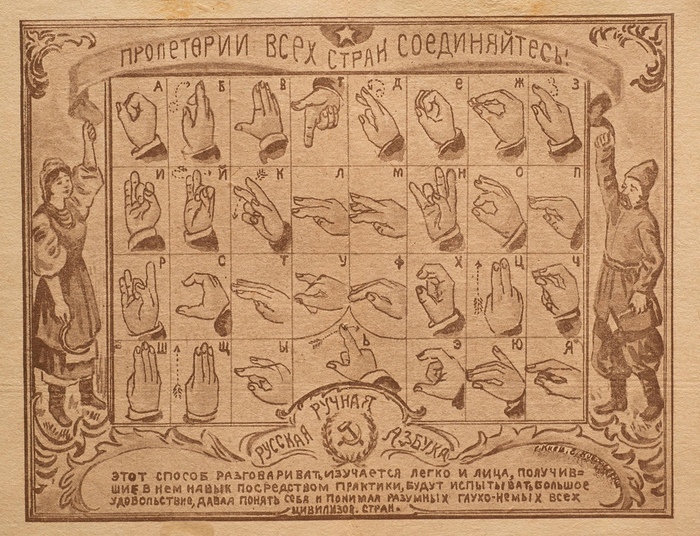 ПРОЛЕТАРИИ ВСЕХ СТРАН СОЕДИНЯЙТЕСЬ!
А Б В Г Д Е Ж З
И Й К Л М Н О П
Р С Т У Ф Х Ц Ч
Ш Щ Ы Ь Э Ю Я
РУССКАЯ РУЧНАЯ АЗБУКА
Г. КИЕВ.
ЭТОТ СПОСОБ РАЗГОВАРИВАТЬ, ИЗУЧАЕТСЯ ЛЕГКО И ЛИЦА, ПОЛУЧИВ=
ШИЕ В НЕМ НАВЫК ПОСРЕДСТВОМ ПРАКТИКИ, БУДУТ ИСПЫТЫВАТЬ БОЛЬШОЕ
УДОВОЛЬСТВИЕ, ДАВАЯ ПОНЯТЬ СЕБЯ И ПОНИМАЯ РАЗУМНЫХ ГЛУХО-НЕМЫХ ВСЕХ
ЦИВИЛИЗОВ. СТРАН.